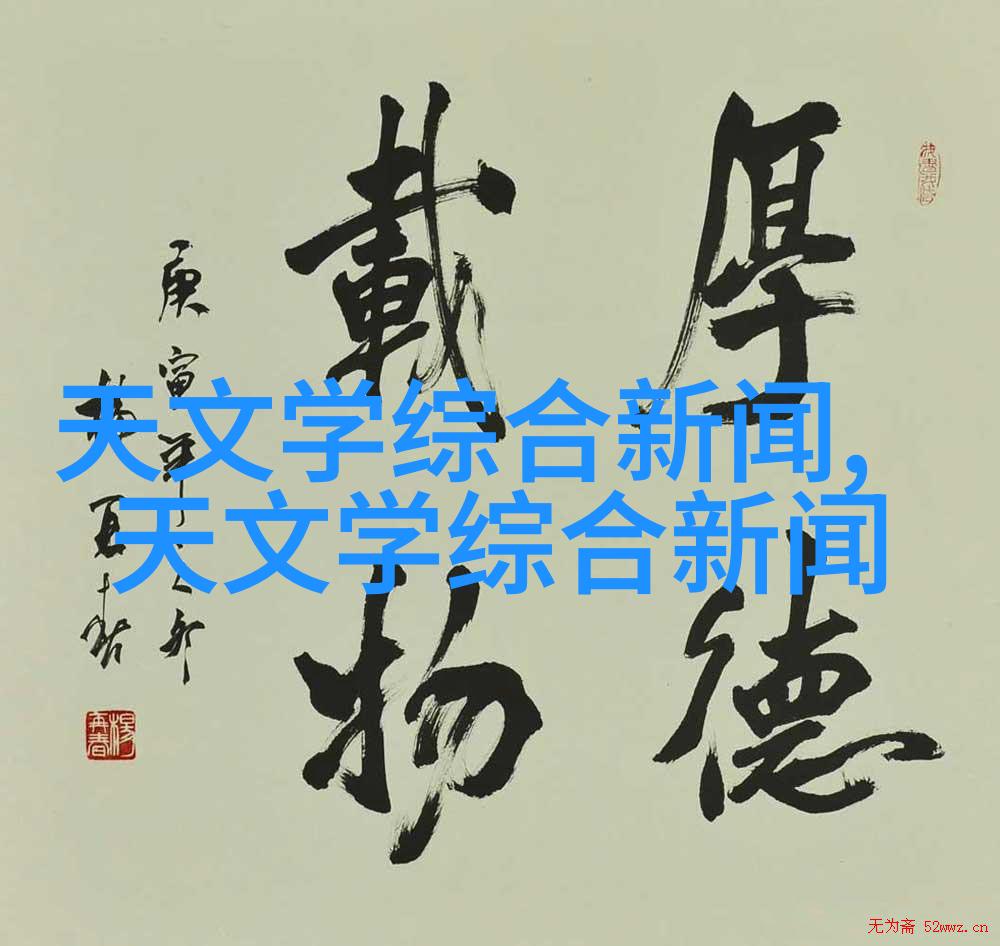 厚德
載物
庚寅
楊再春
天文学综合新闻,
天文学综合新闻
楊再春
无为斋 52wwz.cn